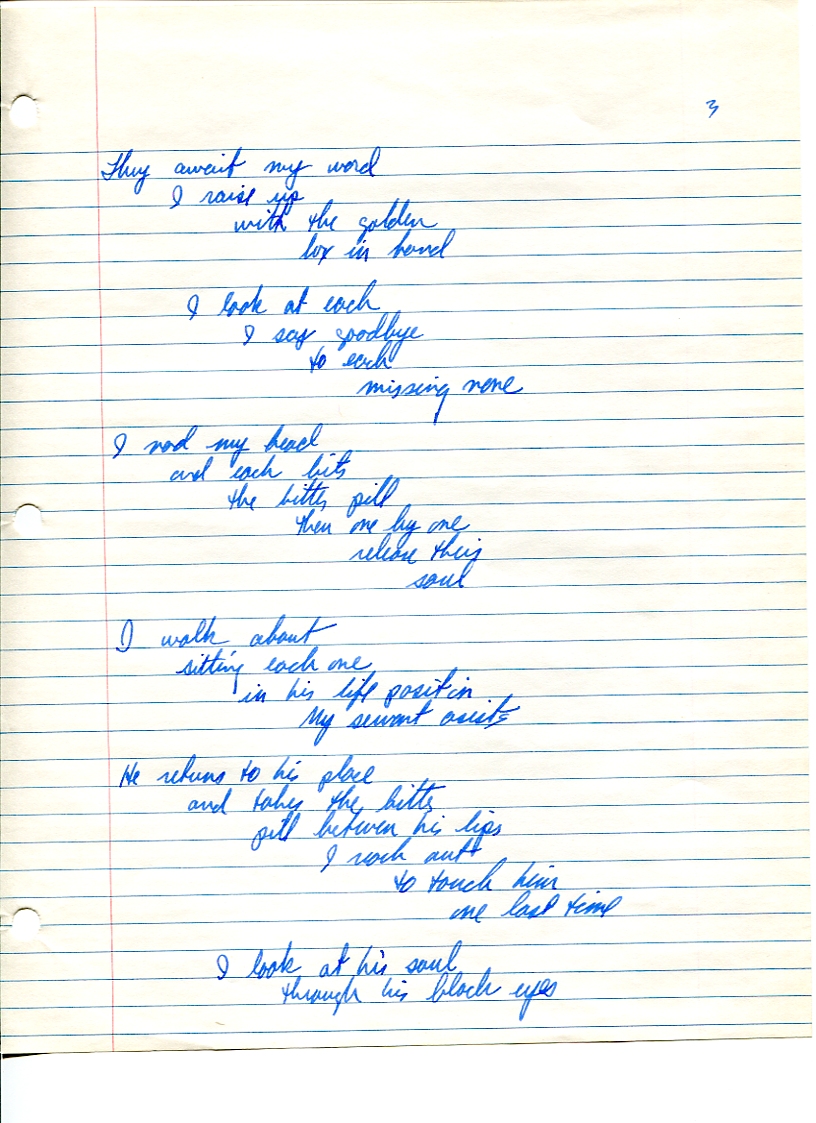 3
They await my word
I raise up
with the golden
box in hand
I look at each
I say goodbye
to each
missing none
I nod my head
and each bits
the bitter pill
then one by one
release their
soul
I walk about
sitting each one
in his life position
My servant asists
He returns to his place
and takes the bitter
pill between his lips
I reach out
to touch him
one last time
I look at his soul
through his black eyes